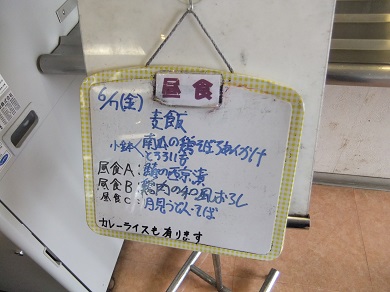 昼食
6/7(金)
麦飯
小鉢 南瓜の鶏そぼろあんかけ
とろろいも
昼食A:鯖の西京漬
昼食B:鶏肉の和風おろし
昼食C:月見うどん・そば
カレーライスも有ります